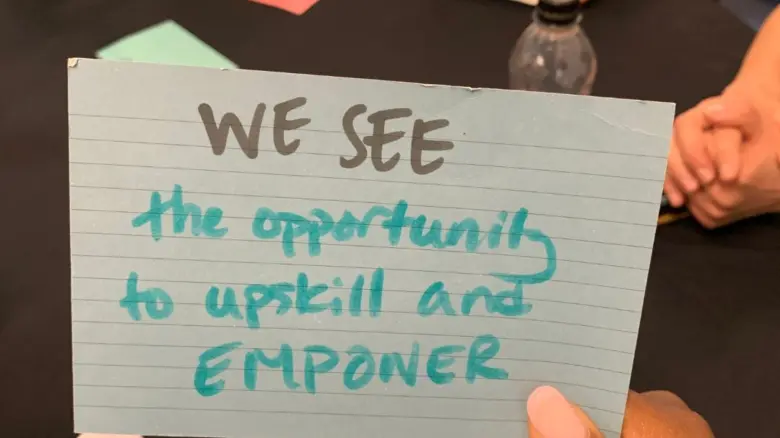 WE SEE
the opportunity
to upskill and
EMPOWER